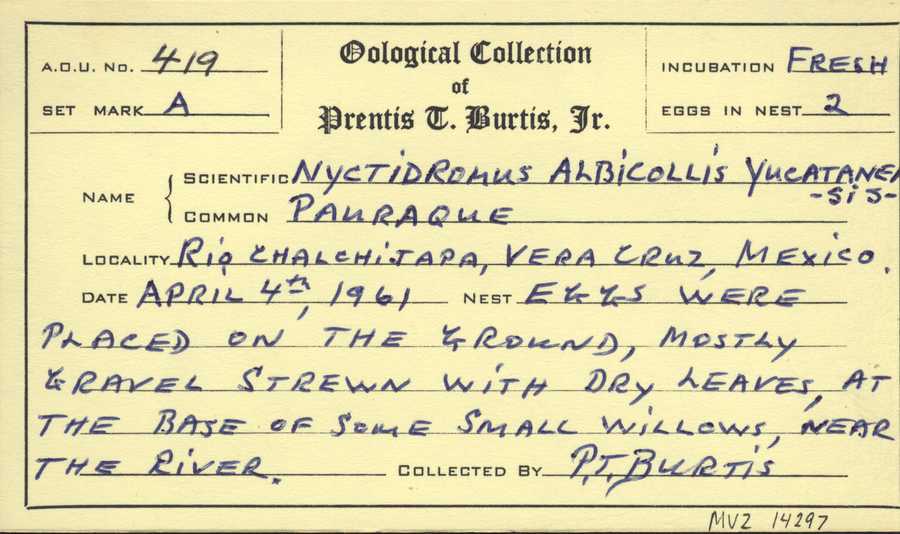 A.O.U. No. 419
Oological Collection
of
Prentis T. Burtis, Jr.
INCUBATION FRESH
SET MARK A
EGGS IN NEST 2
NAME
SCIENTIFIC NYCTIDROMUS ALBICOLLIS YUCATANEN
-SIS-
COMMON PAURAQUE
LOCALITY RIO CHALCHIJAPA, VERA CRUZ, MEXICO.
DATE APRIL 4th, 1961 NEST EGGS WERE
PLACED ON THE GROUND, MOSTLY
GRAVEL STREWN WITH DRY LEAVES, AT
THE BASE OF SOME SMALL WILLOWS, NEAR
THE RIVER. COLLECTED BY P.T. BURTIS
MVZ 14297